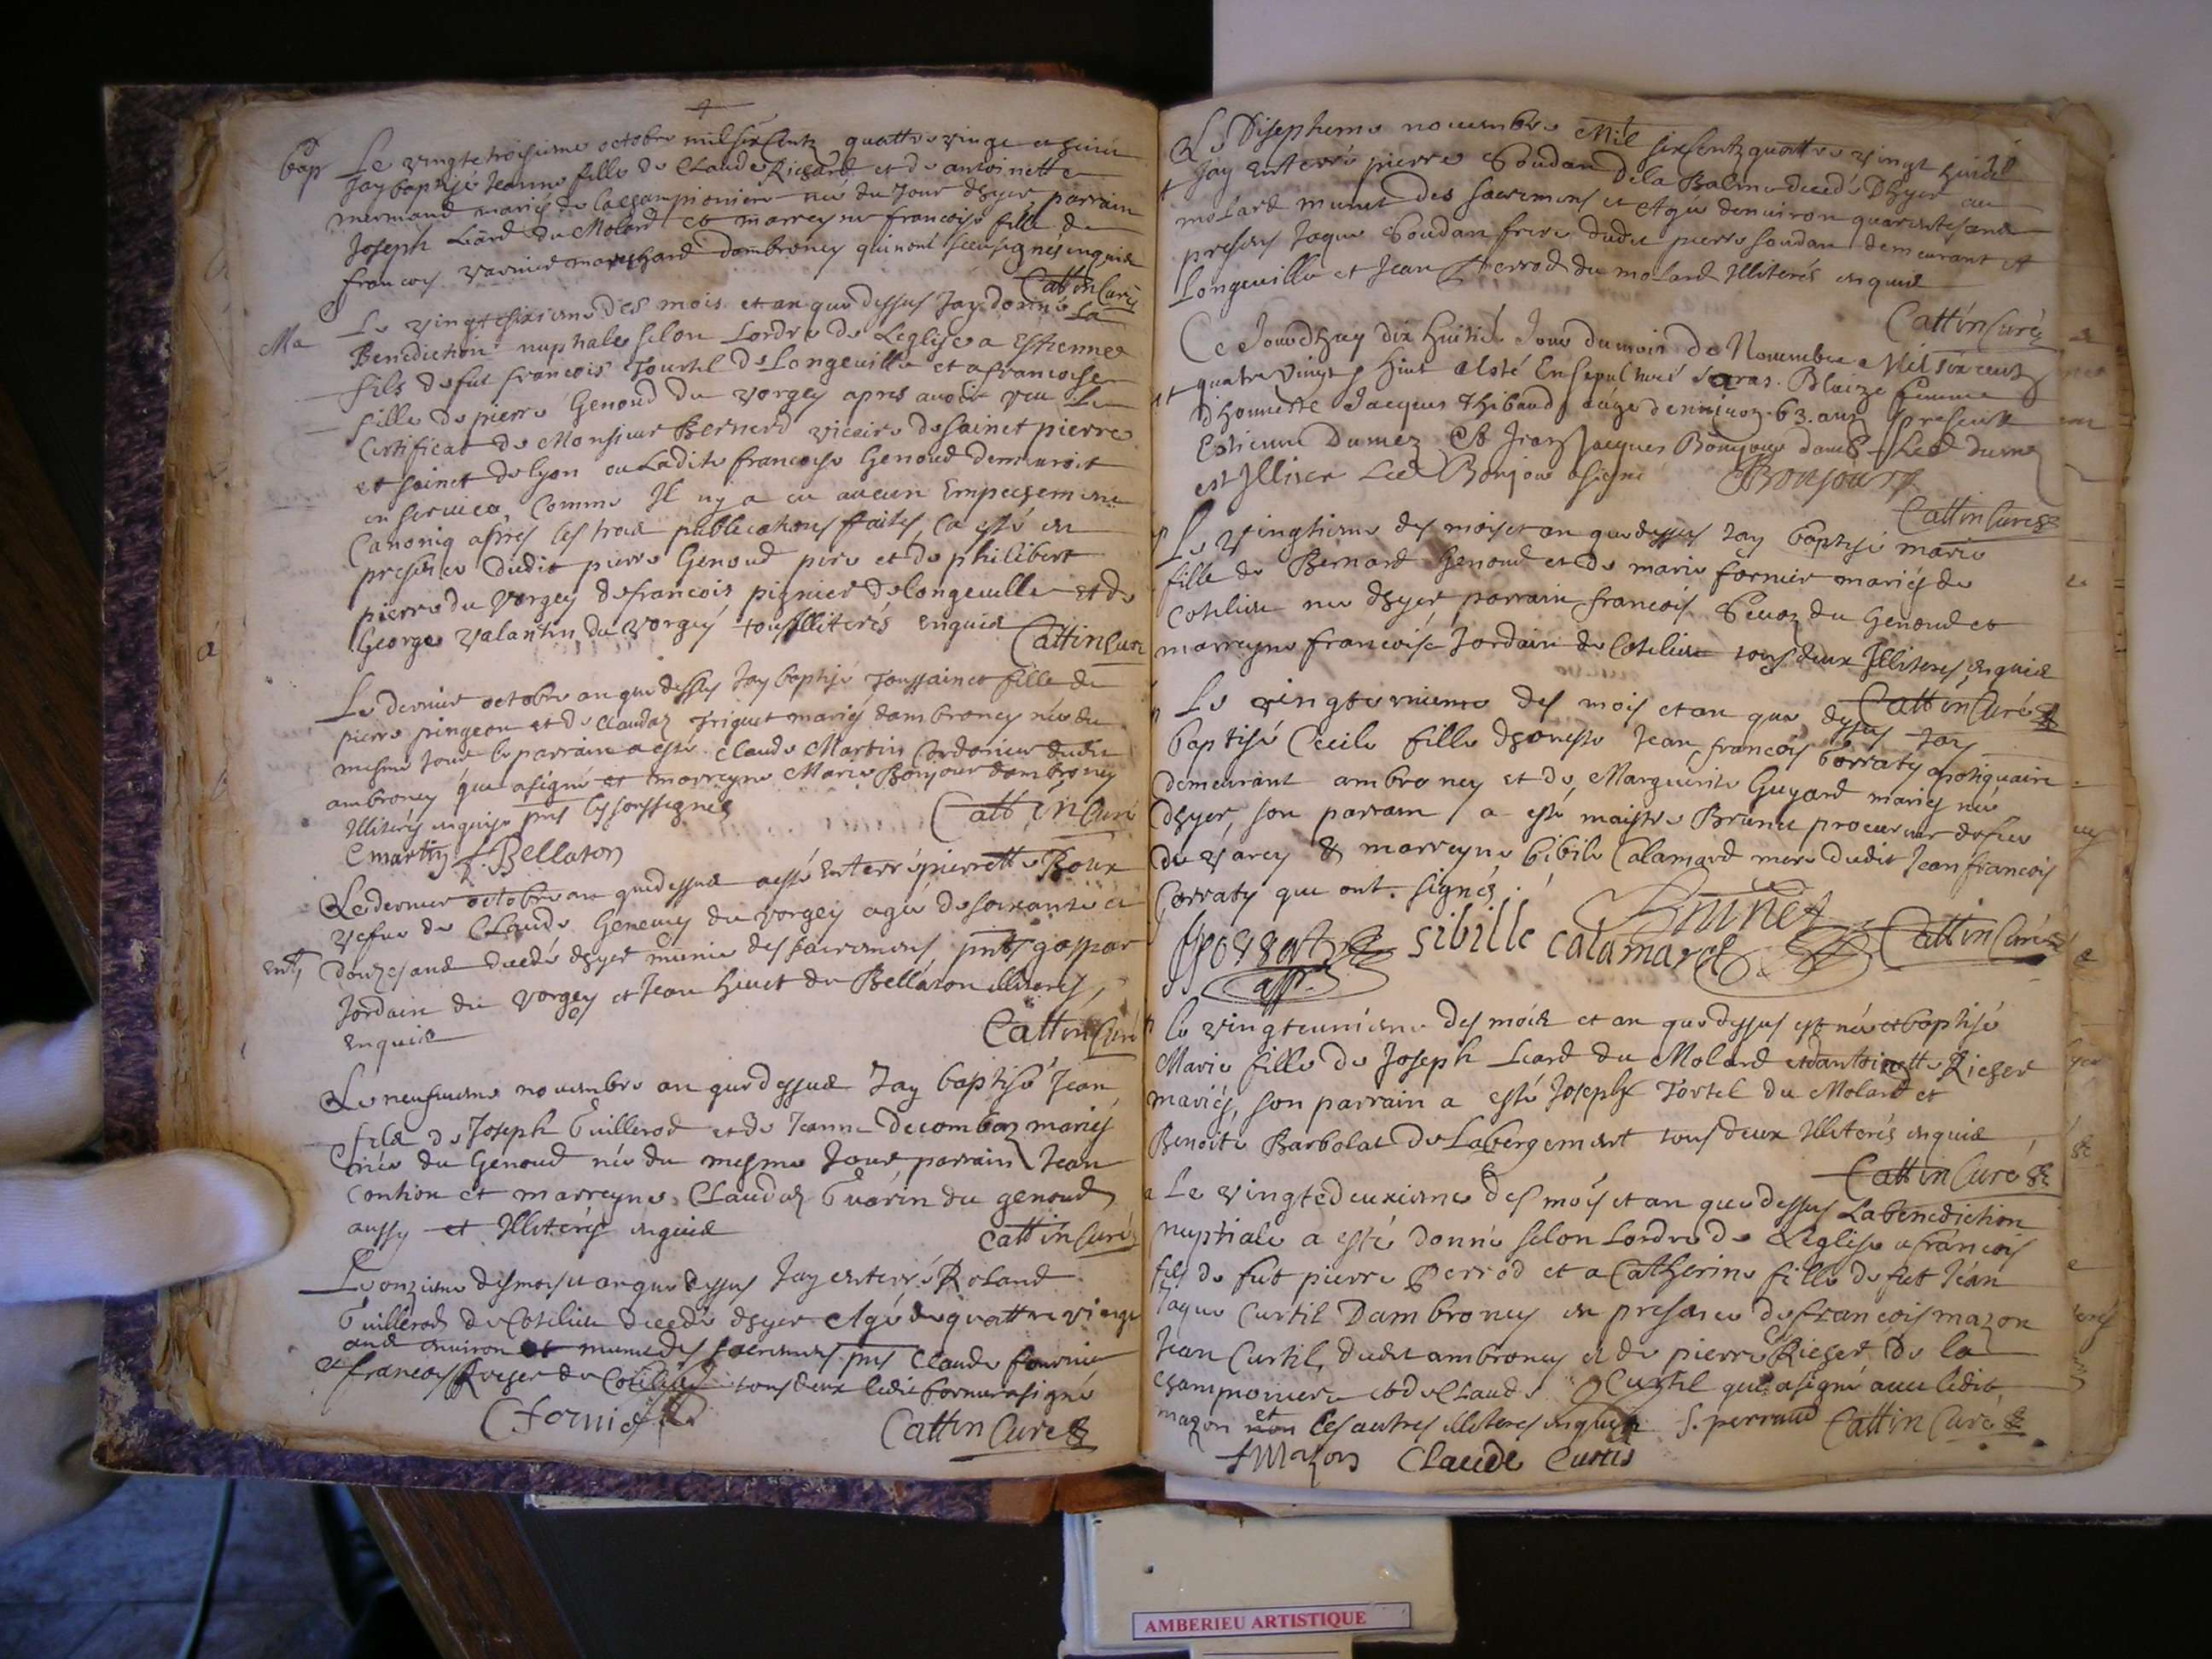 bap
Le vingtetroisieme octobre mil six Centz quattre vingt et huict
Jay baptisé Jeanne fille de Claude Richard et de antoinette
mermand mariés de la championiere née du Jour dhyer parrain
Joseph Liard du Molard et marreyne francoise fille de
francois varnier mareschard dambroney qui nont sceu signés enquis
Cattin Curé
Ma
Le vingtesixieme des mois et an que dessus Jay donné La
Benediction nuptiales selon Lordre de Leglise a Estienne
fils de fut francois Tourtel de Longeville et a francoise
fille de pierre Genoud du vorgey apres avoir veu Le
Certificat de Monsieur Bernerd vicaire de sainct pierre
et sainct de lyon ou Ladite francoise Genoud demeuroit
en service, Comme Il ny a eu aucun Empechement
Canoniq apres les trois publications faites, Ca esté en
presence dudit pierre Genoud pere et de philibert
pierre du vorgey de francois pignier de longeville et de
George valantin du vorgey tous Illiterés enquis
Cattin Curé
Le dernier octobre an que dessus Jay baptisé Toussaincte fille de
pierre pingeon et de Claudaz friguet mariés dambroney née du
mesme Jour le parrain a esté Claude Martin Cordonier dudit
ambroney qui a signé et marreyne Marie Bonjour dambroney
Illiterés enquise pnts les soussignés
Cattin Curé
C martin f. Bellaton
Le dernier octobre an que dessus a esté Enterré pierrette Boux
vefue de Claude Genevey du vorgey agée de soixante et
Ent
douze ans decedé dhyer munie des sacremens, pnts gaspar
Jordain du vorgey et Jean huict de Bellaton illiterés,
enquis
Cattin Curé
Le neufvieme novembre an que dessus Jay baptisé Jean
fils de Joseph Guillerod et de Jeanne decombaz mariés
née du Genoud née du mesme Jour, parrain Jean
Contion et marreyne Claudaz Guérin du genoud
aussy et Illiterés enquis
Cattin Curé
Le onzieme des mois et an que dessus Jay enterré Roland
Guillerod de Cotelieu decedé dhyer Agé de quattre vingt
ans environ et muni des sacremens pnts Claude fournier
et francois Roger de Cotelieu tous deux ledit fornier a signé
C fornier
Cattin Curé
Le Disephieme novembre Mil six Centz quattre vingt huict
Jay Enterré pierre Soudan de la Balme decedé Dhyer au
molard munit des sacremens et Agée denviron quarente ans
presens Jaque Soudan frere dudit pierre soudan demeurant A
Longeville et Jean Perrod du molard Illiterés enquis
Cattin Curé
Ce Jourdhuy dix huitié Jour du mois de Novembre Mil six cent
quatre vingts huit A esté Ensepulturé Blaize femme
dhonneste Jacques Thibaud agée denviron 63. ans Presente
Estienne Dumez Et Jean Jacques Bonjour Led dumez
est Illiser Led Bonjour a signé BBonjour
Cattin Curé
Le vingtieme des mois et an que dessus Jay baptisé marie
fille de Bernard Genoud et de marie fornier mariés de
Cotelieu née dhyer, parrain francois Sevoz du Genoud et
marreyne francoise Jordain de Cotelieu tous deux Illiteres enquis
Cattin Curé
Le vingteunieme des mois et an que dessus Jay
baptisé Cecile fille dhoneste Jean francois borraty apotiquaire
demeurant ambroney et de Marguerite Guyard mariés née
dhyer, son parrain a esté maistre Brunet procureur
de Varey & marreyne Sibile Calamard mere dudit Jean francois
borraty qui ont signés.
Brunet
sibille calamard
Cattin Curé
app.
le vingteunieme des mois et an que dessus est née et baptisé
Marie fille de Joseph Liard du Molard et dantoinette Richer
mariés, son parrain a esté Joseph Tortel du Molard et
Benoite Barbolat de Labergement tous deux Illiterés enquis
Cattin Curé
Le vingtedeuxieme des mois et an que dessus La benediction
nuptiale a esté donné selon Lordre de Leglise a francois
fils de fut pierre Perrod et a Catherine fille de fut Jean
Jaque Curtil Dambroney en presence de francois mazon
Jean Curtil, dudit ambroney et de pierre Richer de la
champoniere et de Claude Curtil qui a signé avec ledit
mazon et non les autres illiteres enquis f. perraud Cattin Curé
f Mazon Claude Curtis
AMBERIEU ARTISTIQUE